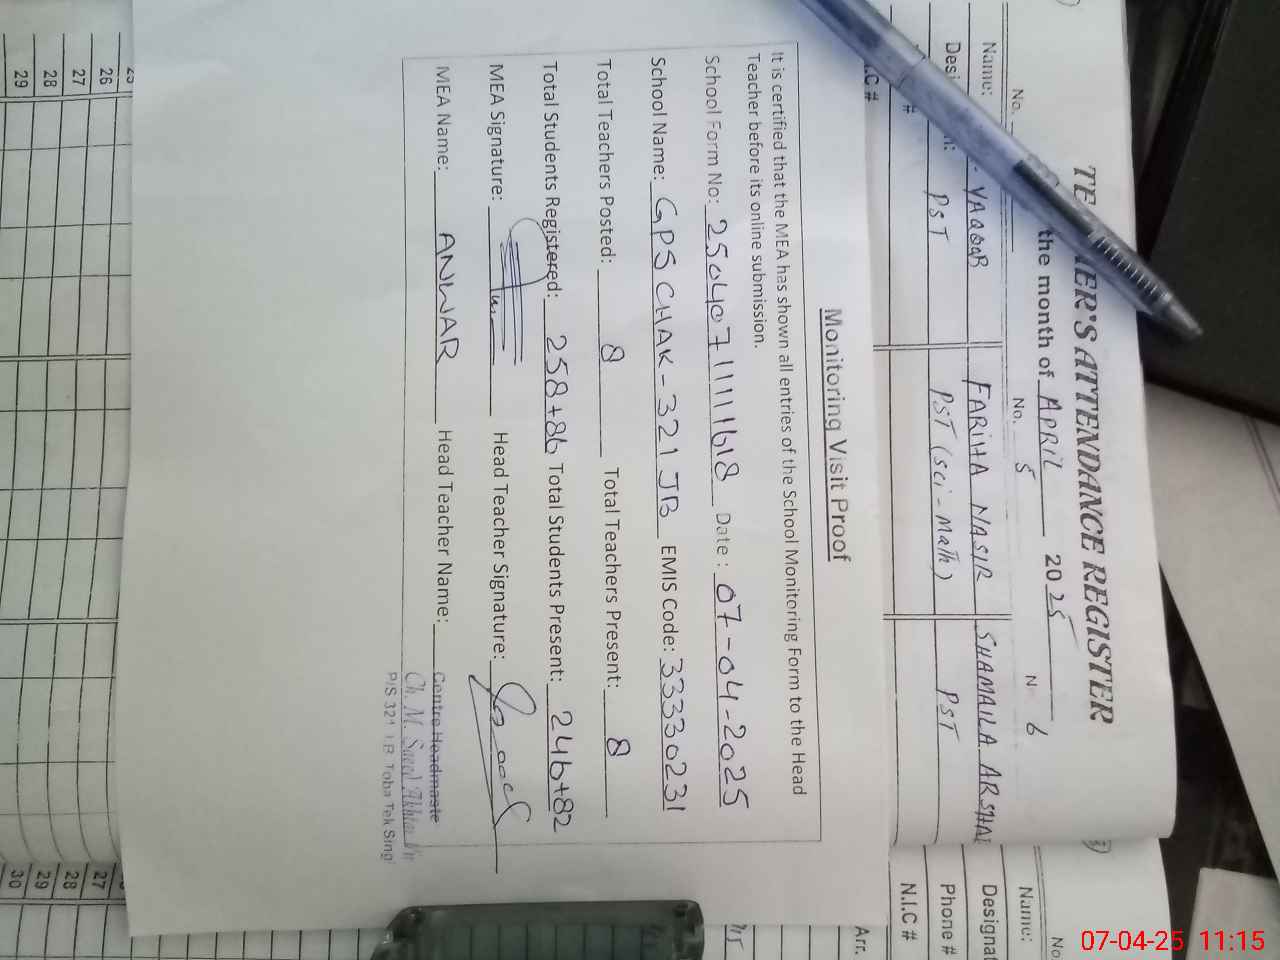 TEACHER'S ATTENDANCE REGISTER
the month of APRIL 2025
No. No. 5 N 6
Name: YAQOOB FARIHA NASIR SHAMAILA ARSHA
Desi n: PST PST (Sci-Math) PST
#
I.C #
Monitoring Visit Proof
It is certified that the MEA has shown all entries of the School Monitoring Form to the Head
Teacher before its online submission.
School Form No: 25040711111618 Date: 07-04-2025
School Name: GPS CHAK-321 JB EMIS Code: 33330231
Total Teachers Posted: 8 Total Teachers Present: 8
Total Students Registered: 258+86 Total Students Present: 246+82
MEA Signature: Head Teacher Signature:
MEA Name: ANWAR Head Teacher Name:
Centre Headmaste
Ch. M. Saeed Akhtar
P/S 321 J.B Toba Tek Sing
No.
Name:
Designat
Phone #
N.I.C #
Arr.
26
27
28
29
27
28
29
30
07-04-25 11:15